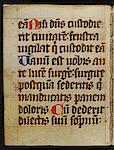 Nisi dn̄s custodie
rit ciuitatē: frustra
uigilat q̇ custodit eā
Uanū est uobis an
te lucē surge: surgite
postquā sederitis q̇
manducatis panem
doloris Cū dederit
dilectis suis sopnū: